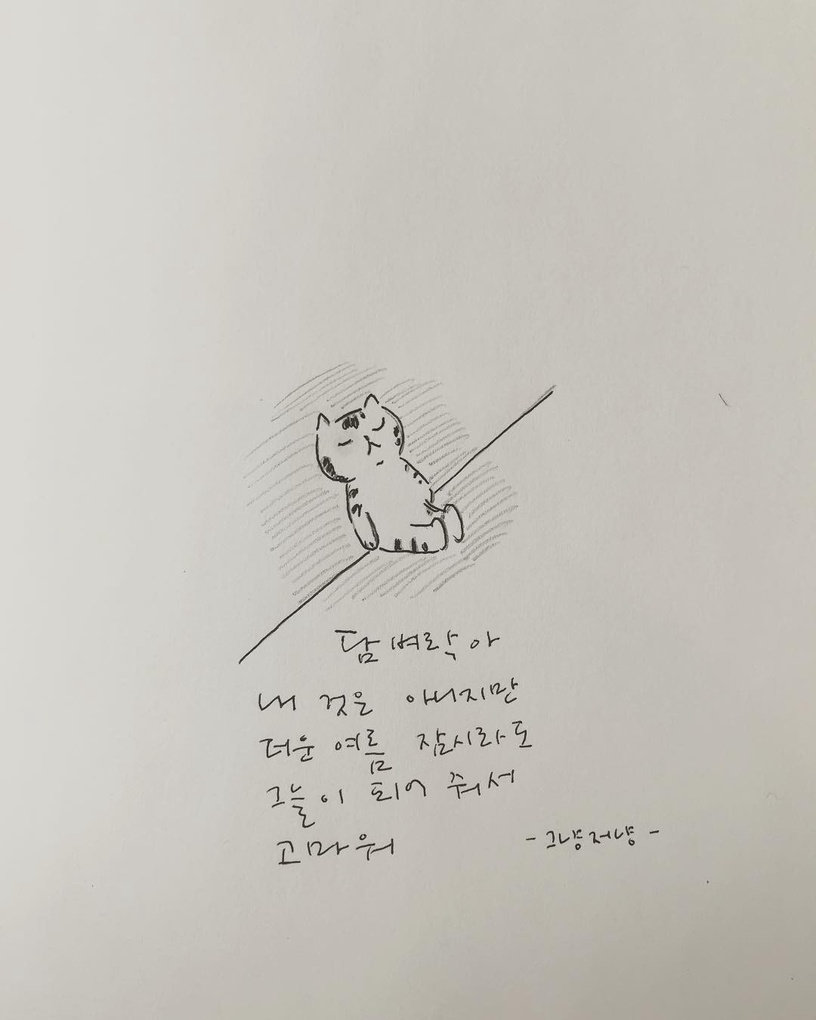 담벼락아
내 것은 아니지만
더운 여름 잠시라도
그늘이 되어 줘서
고마워
- 그냥저냥 -